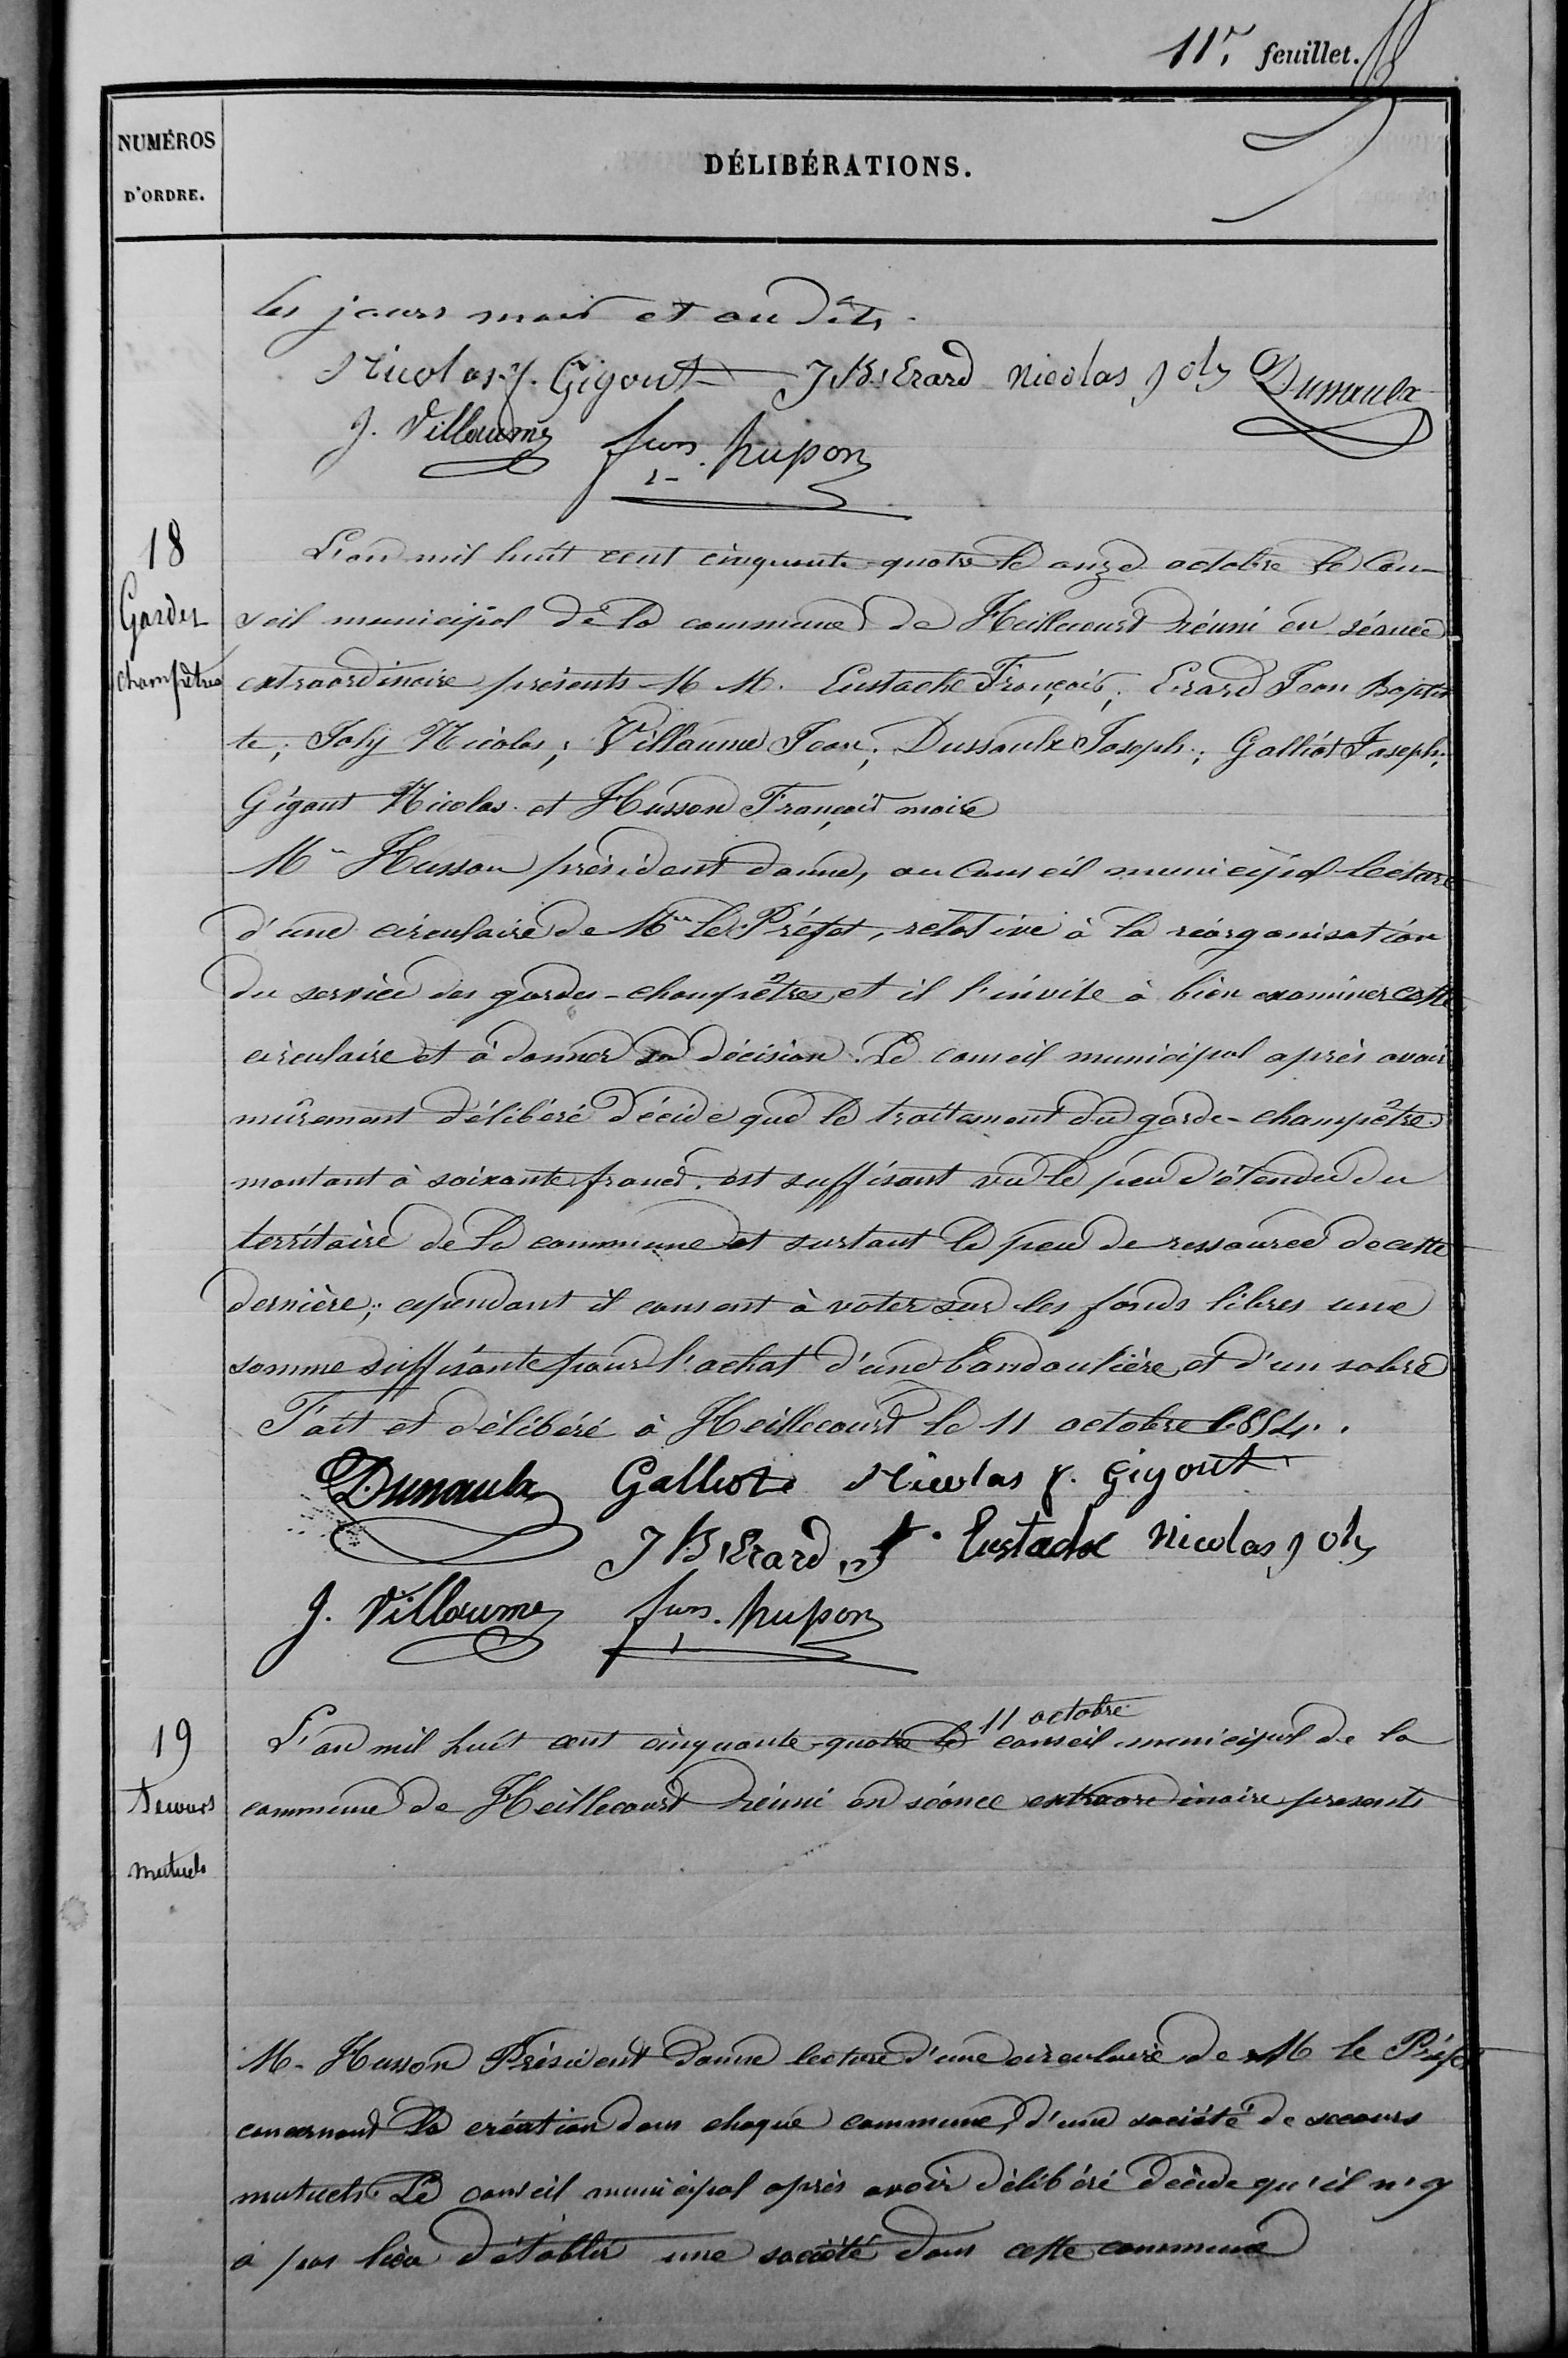 11e. feuillet.
NUMÉROS
D'ORDRE.
DÉLIBÉRATIONS.
les jours mois et an dits.
Nicolas f. Gigout J B Erard Nicolas joly Dussaulx
J. Villaume fcois. husson
18
Gardes
champêtres
L'an mil huit cent cinquante-quatre le onze octobre le Con-
seil municipal de la commune de Heillecourt réuni en séance
extraordinaire présents M M. Eustache François; Erard Jean Baptis
te; Joly Nicolas; Villaume Jean; Dussaulx Joseph; Galliot Joseph;
Gigout Nicolas et Husson François maire
Mr Husson président donne, au Conseil municipal lecture
d'une circulaire de Mr le Préfet, relative à la réorganisation
du service des gardes-champêtres et il l'invite à bien examiner cette
circulaire et à donner sa décision. Le conseil municipal après avoir
mûrement délibéré décide que le traitement du garde-champêtre
montant à soixante francs. est suffisant vu le peu d'étendue du
territoire de la commune et surtout le peu de ressource de cette
dernière; cependant il consent à voter sur les fonds libres une
somme suffisante pour l'achat d'une bandoulière et d'un sabre
Fait et délibéré à Heillecourt le 11 octobre 1854.
Dussaulx Galliot Nicolas f. Gigout
J B Erard f. Eustache Nicolas joly
J. Villaume fcois. husson
19
Secours
mutuels
11 octobre
L'an mil huit cent cinquante-quatre le conseil municipal de la
commune de Heillecourt réuni en séance extraordinaire presents
M. Husson Président donne lecture d'une circulaire de M le Préfet
concernant la création dans chaque commune, d'une société de secours
mutuels. Le conseil municipal après avoir délibéré décide qu'il n'y
a pas lieu d'établir une société dans cette commune